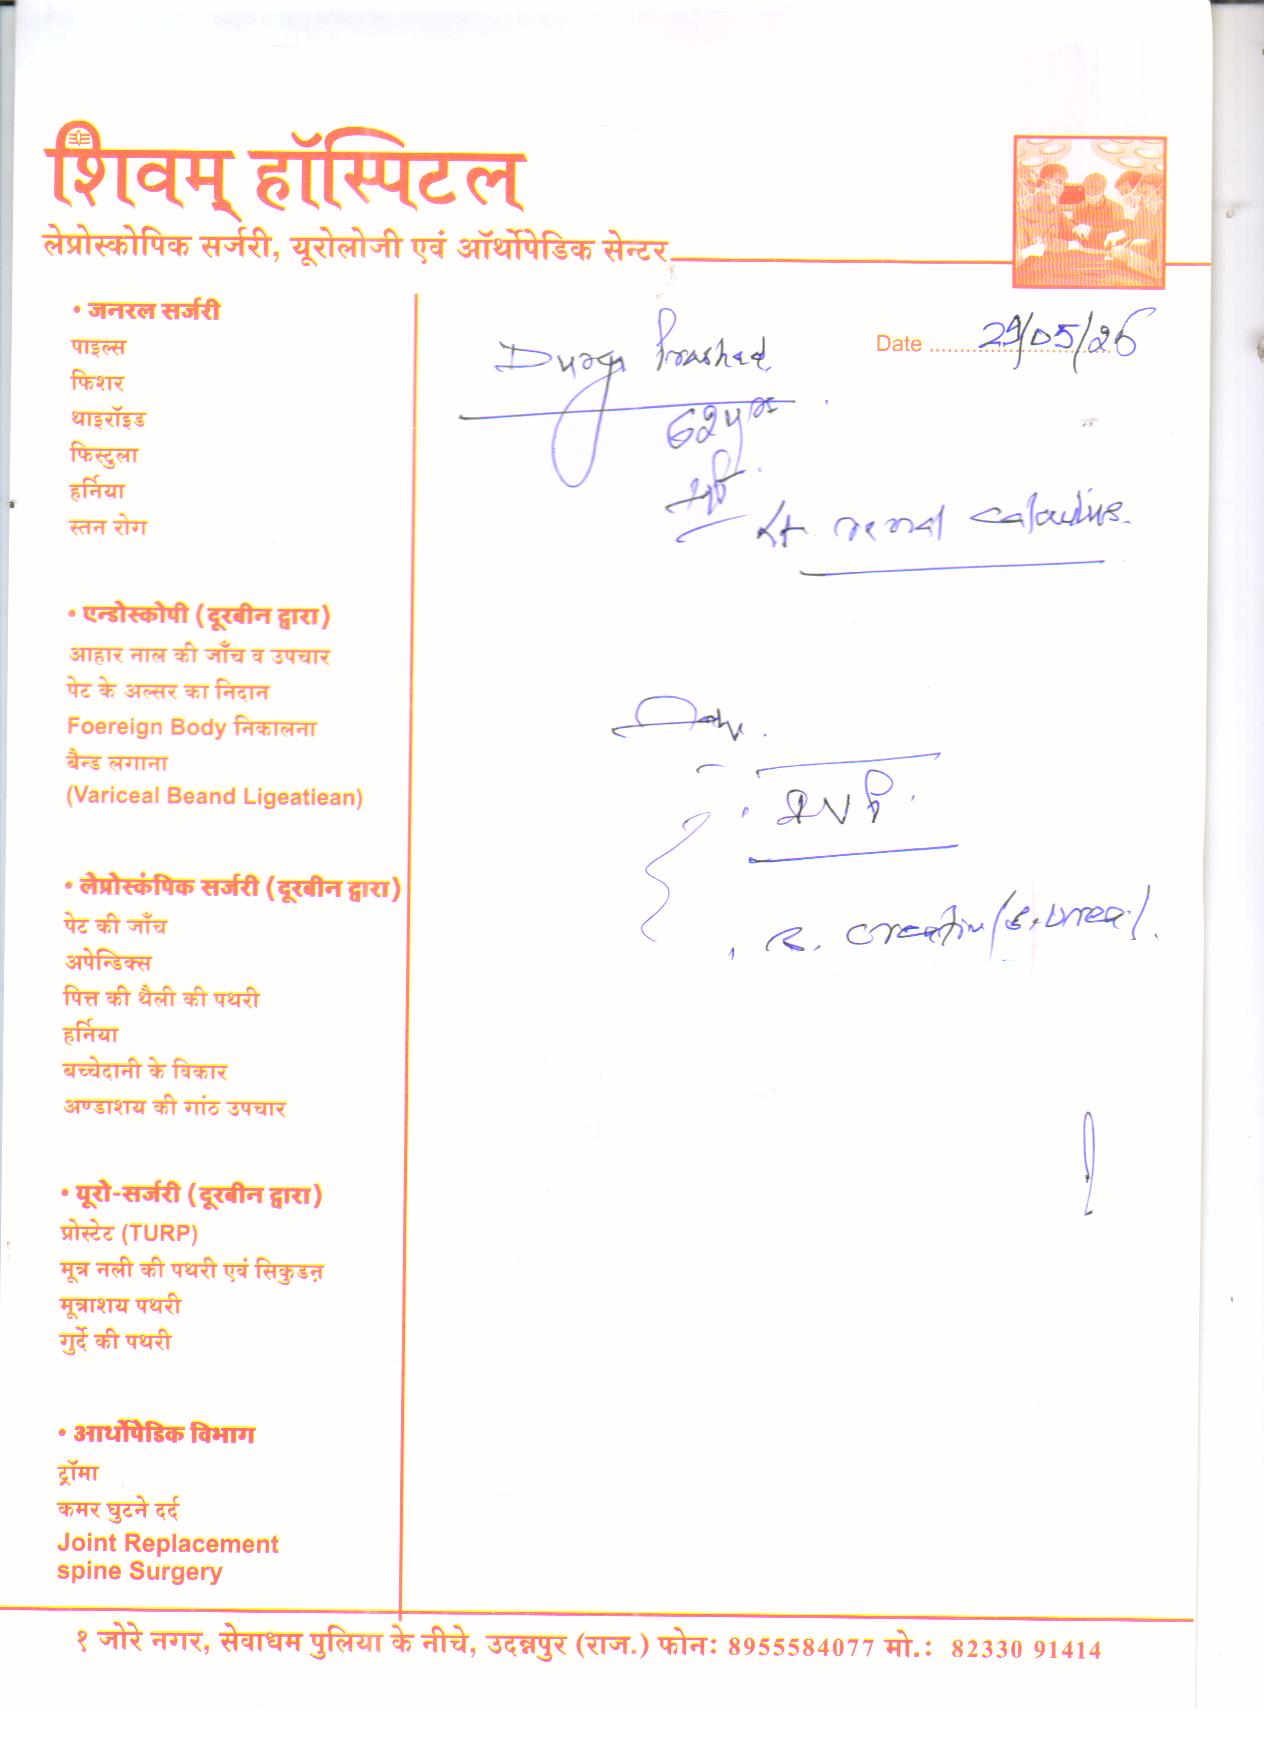 शिवम् हॉस्पिटल
लेप्रोस्कोपिक सर्जरी, यूरोलोजी एवं ऑर्थोपेडिक सेन्टर
• जनरल सर्जरी
पाइल्स
फिशर
थाइरॉइड
फिस्टुला
हर्निया
स्तन रोग
• एन्डोस्कोपी (दूरबीन द्वारा)
आहार नाल की जाँच व उपचार
पेट के अल्सर का निदान
Foereign Body निकालना
बैन्ड लगाना
(Variceal Beand Ligeatiean)
• लेप्रोस्कंपिक सर्जरी (दूरबीन द्वारा)
पेट की जाँच
अपेन्डिक्स
पित्त की थैली की पथरी
हर्निया
बच्चेदानी के विकार
अण्डाशय की गांठ उपचार
• यूरो-सर्जरी (दूरबीन द्वारा)
प्रोस्टेट (TURP)
मूत्र नली की पथरी एवं सिकुडऩ
मूत्राशय पथरी
गुर्दे की पथरी
• आर्थोपेडिक विभाग
ट्रॉमा
कमर घुटने दर्द
Joint Replacement
spine Surgery
Date 29/05/26
Durga Prashad
62yrs
Lt renal calculus.
IVP.
S. creatin/S. Urea/.
१ जोरे नगर, सेवाधम पुलिया के नीचे, उदन्नपुर (राज.) फोनः 8955584077 मो.: 82330 91414